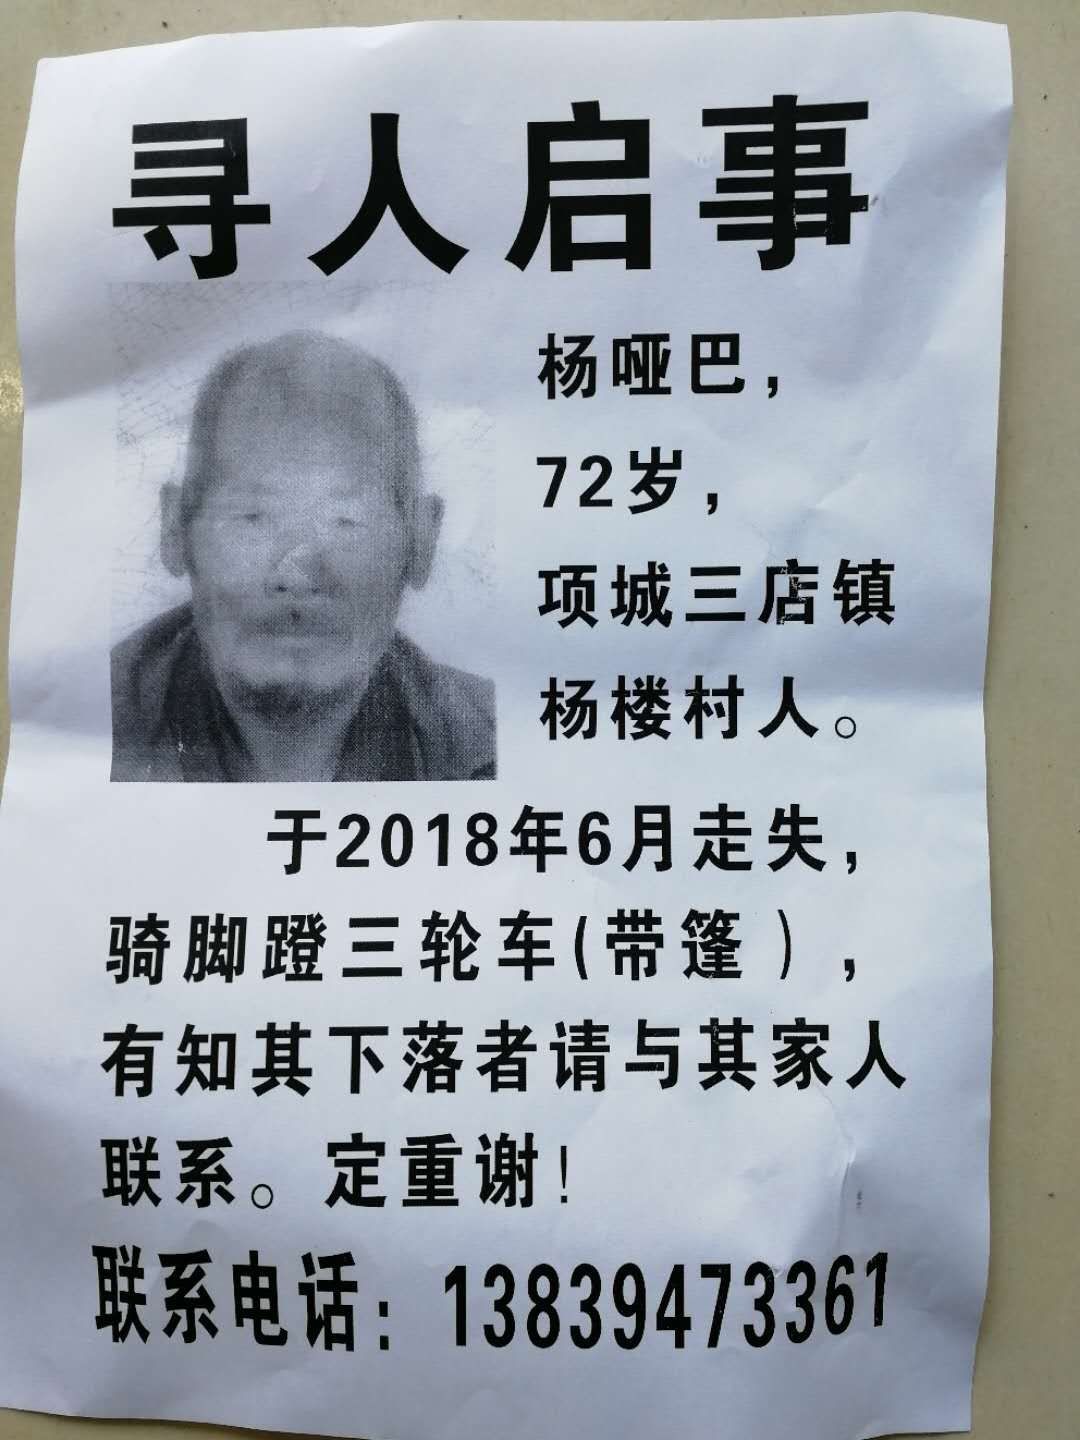 寻人启事
杨哑巴，
72岁，
项城三店镇
杨楼村人。
于2018年6月走失，
骑脚蹬三轮车(带篷），
有知其下落者请与其家人
联系。定重谢！
联系电话：13839473361